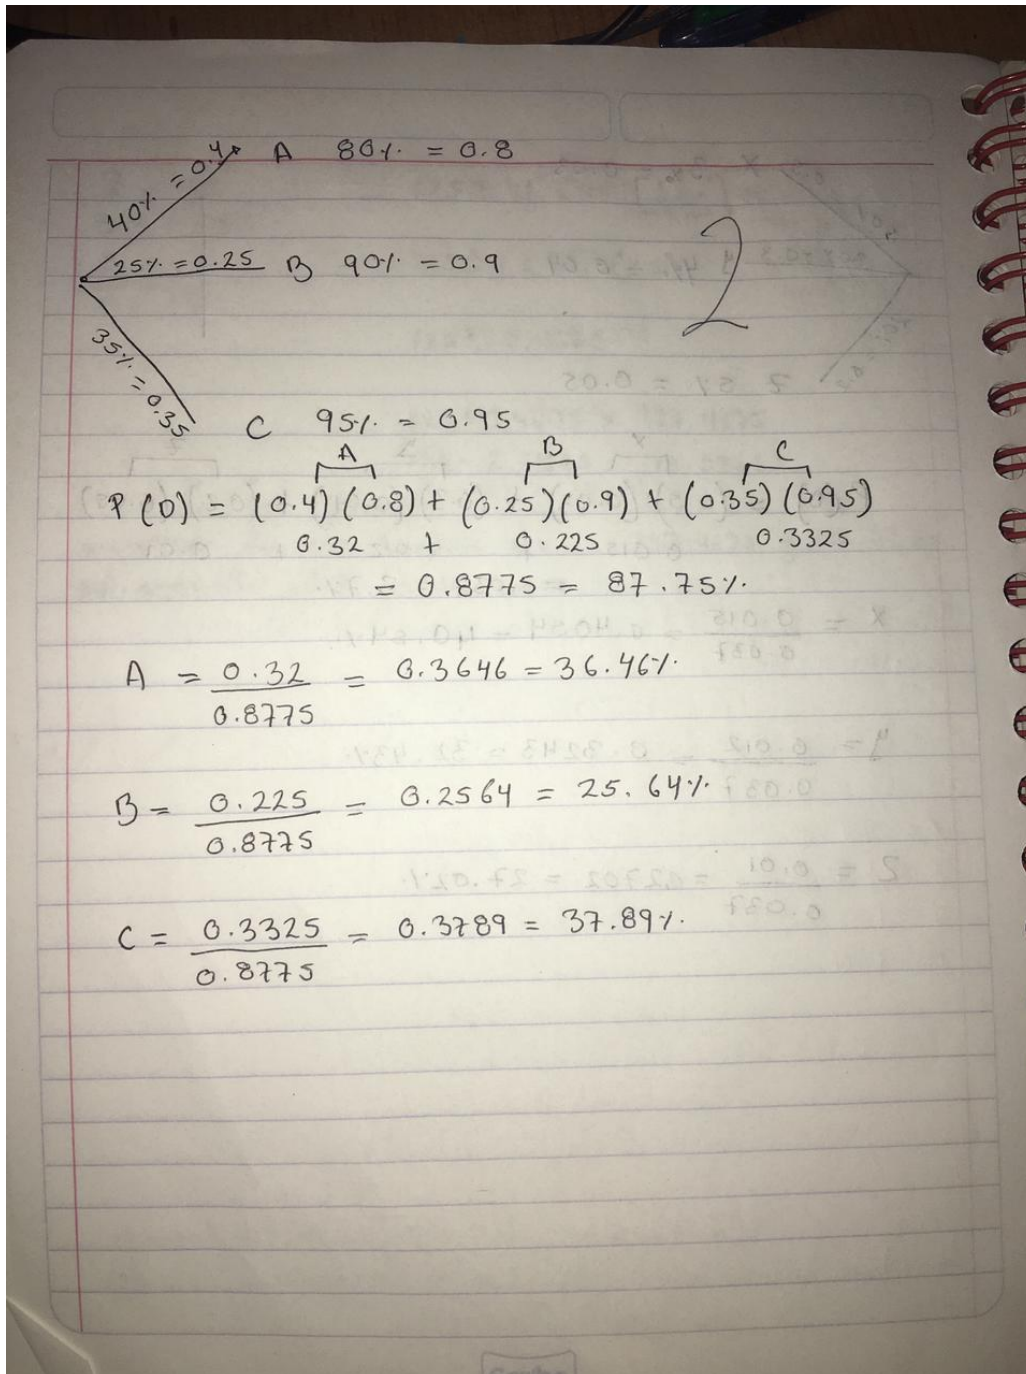 40% = 0.4 A 80% = 0.8
25% = 0.25 B 90% = 0.9
2
35% = 0.35
C 95% = 0.95
A B C
P(D) = (0.4)(0.8) + (0.25)(0.9) + (0.35)(0.95)
0.32 + 0.225 0.3325
= 0.8775 = 87.75%
A = 0.32 / 0.8775 = 0.3646 = 36.46%
B = 0.225 / 0.8775 = 0.2564 = 25.64%
C = 0.3325 / 0.8775 = 0.3789 = 37.89%